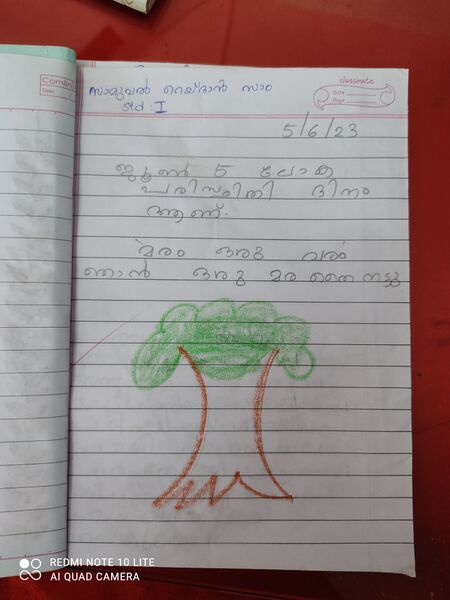 Camlin
Date
classmate
Date
Page
സാമുവൽ റെയ്ദാൻ സാം
Std : I
5/6/23
ജൂൺ 5 ലോക
പരിസ്ഥിതി ദിനം
ആണ്.
മരം ഒരു വരം
ഞാൻ ഒരു മര തൈ നട്ടു
REDMI NOTE 10 LITE
AI QUAD CAMERA